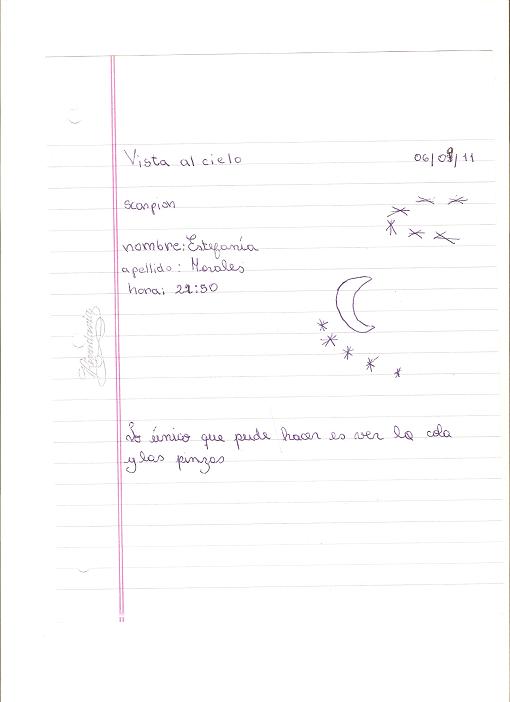 Vista al cielo 06/09/11
scorpion
nombre: Estefanía
apellido: Morales
hora: 22:50
Lo único que pude hacer es ver la cola
y las pinzas
Rivadavia